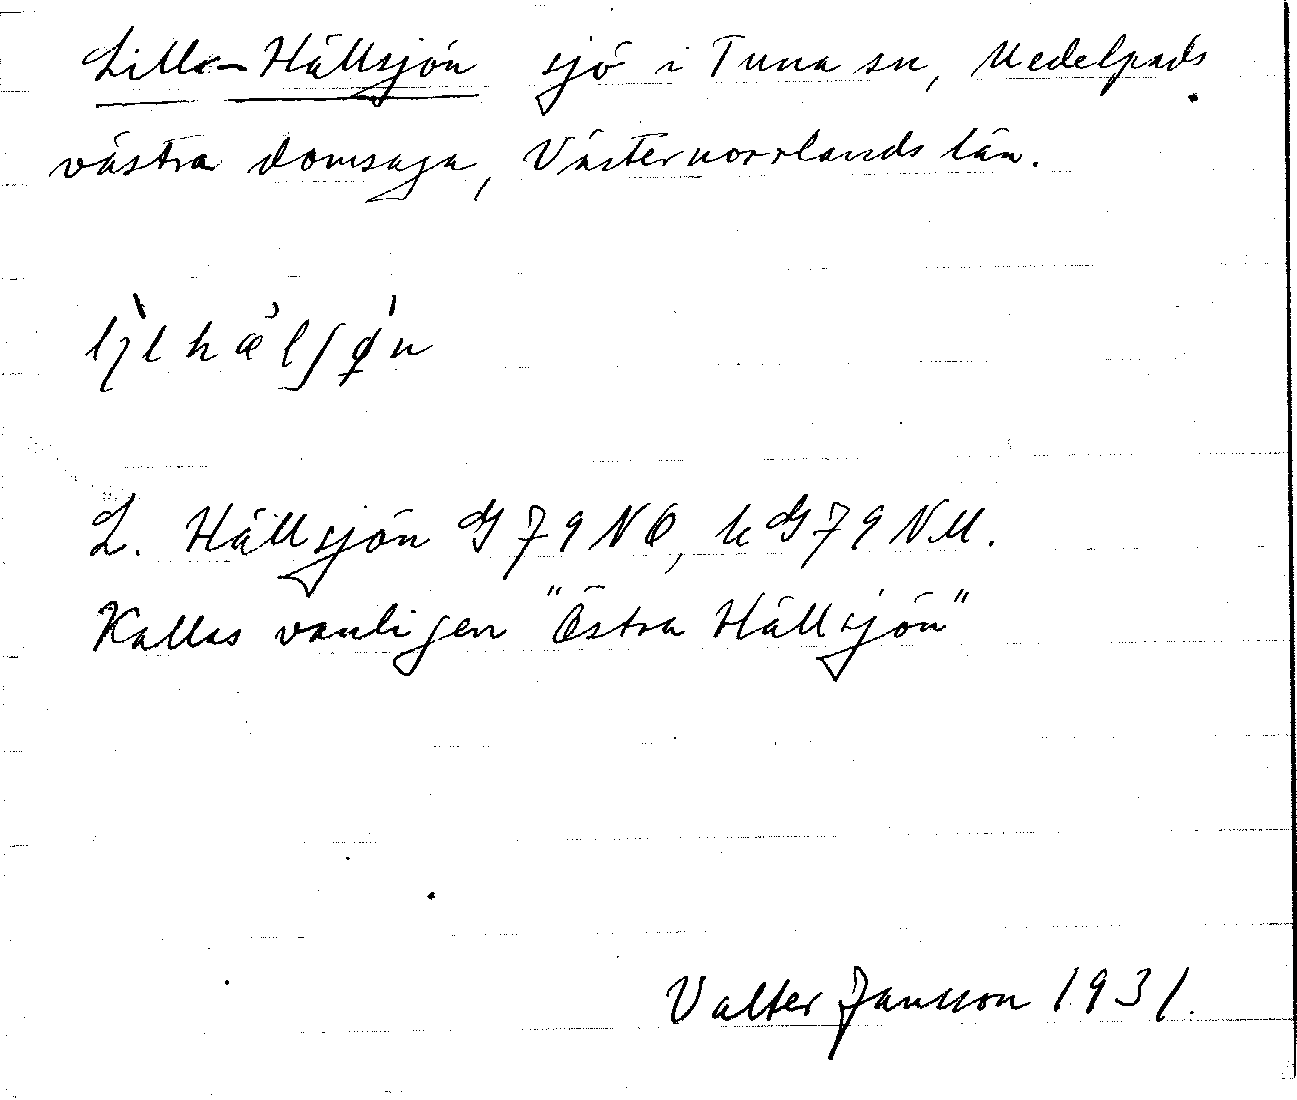 Lilla-Hällsjön sjö i Tuna sn, Medelpads
västra domsaga, Västernorrlands län.
L. Hällsjön G 79 NO, k G 79 NM.
Kallas vanligen "Östra Hällsjön"
Valter Jansson 1931.